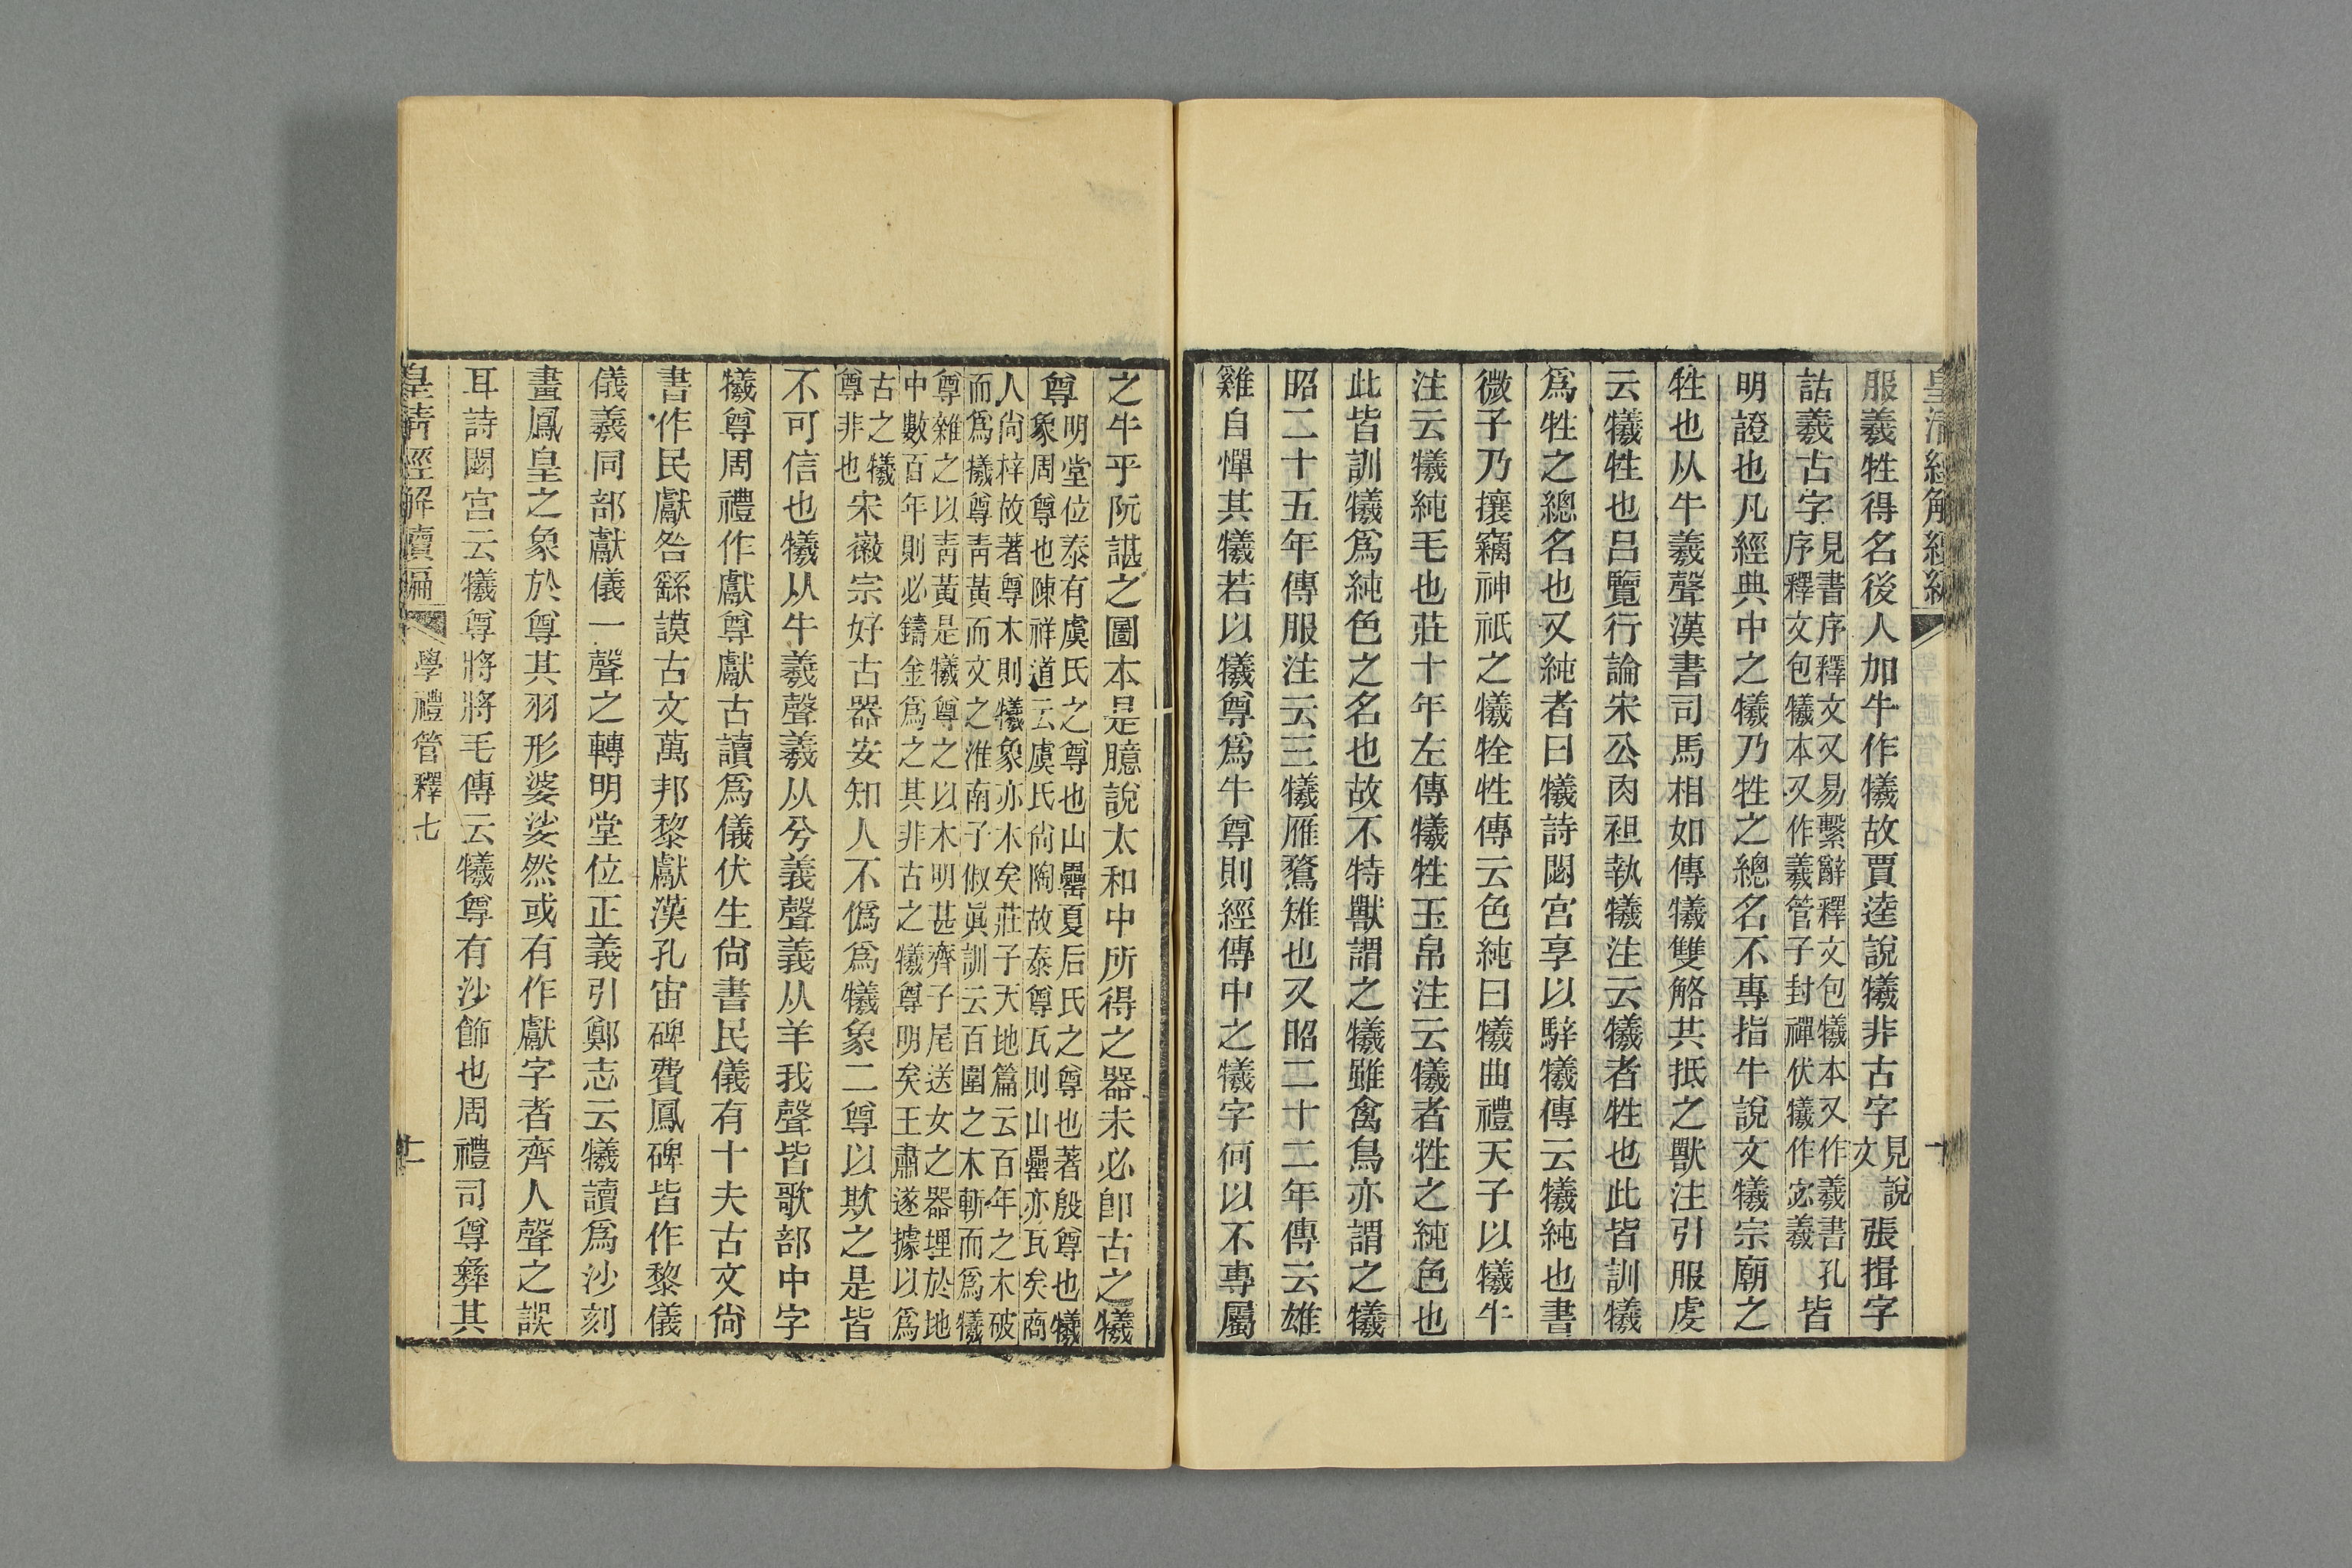 服羲牲得名後人加牛作犧故賈逵說犧非古字見說文張揖字
詁羲古字見書序釋文又易繫辭釋文包犧本又作羲書孔序釋文包犧本又作羲管子封禪伏犧作宓羲皆
明證也凡經典中之犧乃牲之總名不專指牛說文犧宗廟之
牲也从牛羲聲漢書司馬相如傳犧雙觡共抵之獸注引服虔
云犧牲也呂覽行論宋公肉袒執犧注云犧者牲也此皆訓犧
爲牲之總名也又純者曰犧詩閟宮享以騂犧傳云犧純也書
微子乃攘竊神祇之犧牷牲傳云色純曰犧曲禮天子以犧牛
注云犧純毛也莊十年左傳犧牲玉帛注云犧者牲之純色也
此皆訓犧爲純色之名也故不特獸謂之犧雖禽鳥亦謂之犧
昭二十五年傳服注云三犧雁鶩雉也又昭二十二年傳云雄
雞自憚其犧若以犧尊爲牛尊則經傳中之犧字何以不專屬
之牛乎阮諶之圖本是臆說太和中所得之器未必卽古之犧
尊明堂位泰有虞氏之尊也山罍夏后氏之尊也著殷尊也犧象周尊也陳祥道云虞氏尙陶故泰尊瓦則山罍亦瓦矣商
人尙梓故著尊木則犧象亦木矣莊子天地篇云百年之木破而爲犧尊靑黃而文之淮南子俶眞訓云百圍之木斬而爲犧
尊雜之以靑黃是犧尊之以木明甚齊子尾送女之器埋於地中數百年則必鑄金爲之其非古之犧尊明矣王肅遂據以爲
古之犧尊非也宋徽宗好古器安知人不僞爲犧象二尊以欺之是皆
不可信也犧从牛羲聲羲从兮義聲義从羊我聲皆歌部中字
犧尊周禮作獻尊獻古讀爲儀伏生尙書民儀有十夫古文尙
書作民獻咎繇謨古文萬邦黎獻漢孔宙碑費鳳碑皆作黎儀
儀羲同部獻儀一聲之轉明堂位正義引鄭志云犧讀爲沙刻
畫鳳皇之象於尊其羽形婆娑然或有作獻字者齊人聲之誤
耳詩閟宮云犧尊將將毛傳云犧尊有沙飾也周禮司尊彝其
皇淸經解續編 學禮管釋七 十一